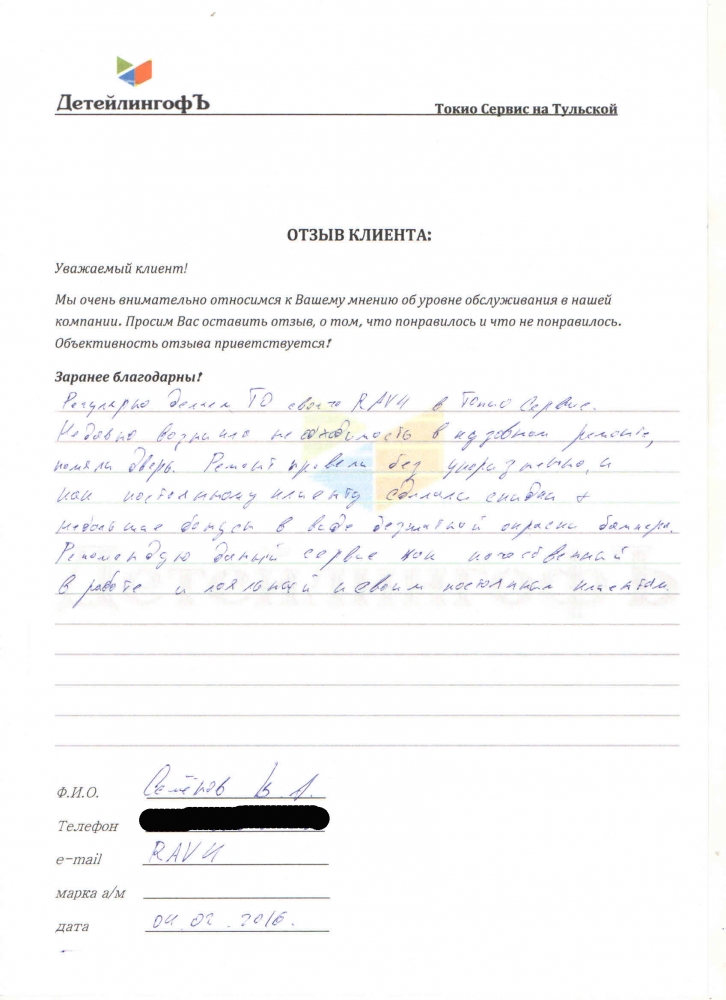 ДетейлингофЪ
Токио Сервис на Тульской
ОТЗЫВ КЛИЕНТА:
Уважаемый клиент!
Мы очень внимательно относимся к Вашему мнению об уровне обслуживания в нашей
компании. Просим Вас оставить отзыв, о том, что понравилось и что не понравилось.
Объективность отзыва приветствуется!
Заранее благодарны!
Регулярно делаем ТО своего RAV4 в Токио Сервис.
Недавно возникло необходимость в кузовном ремонте,
помяли дверь. Ремонт провели без и
как постоянному клиенту сделали скидки +
небольшие бонусы в виде бесплатной окраски бампера.
Рекомендую даный сервис как качественный
в работе и лояльный к своим постоянным клиентам.
Ф.И.О. Семёнов В.А.
Телефон
e-mail RAV4
марка а/м
дата 04.02.2016.